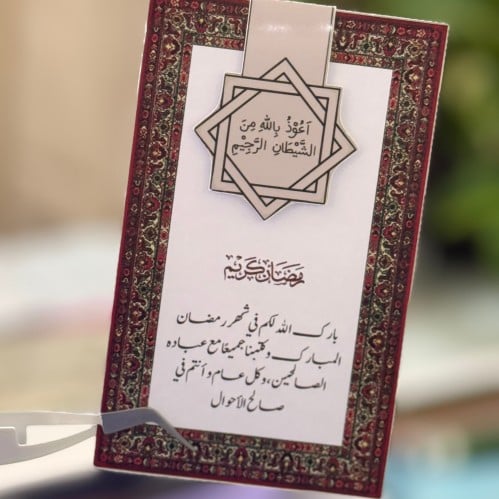 أَعُوْذُ بِاللهِ مِنَ
الشَّيْطَانِ الرَّجِيْمِ
رمضان كريم
بارك الله لكم في شهر رمضان
المبارك وكتبنا جميعا مع عباده
الصالحين، وكل عام وأنتم في
صالح الأحوال